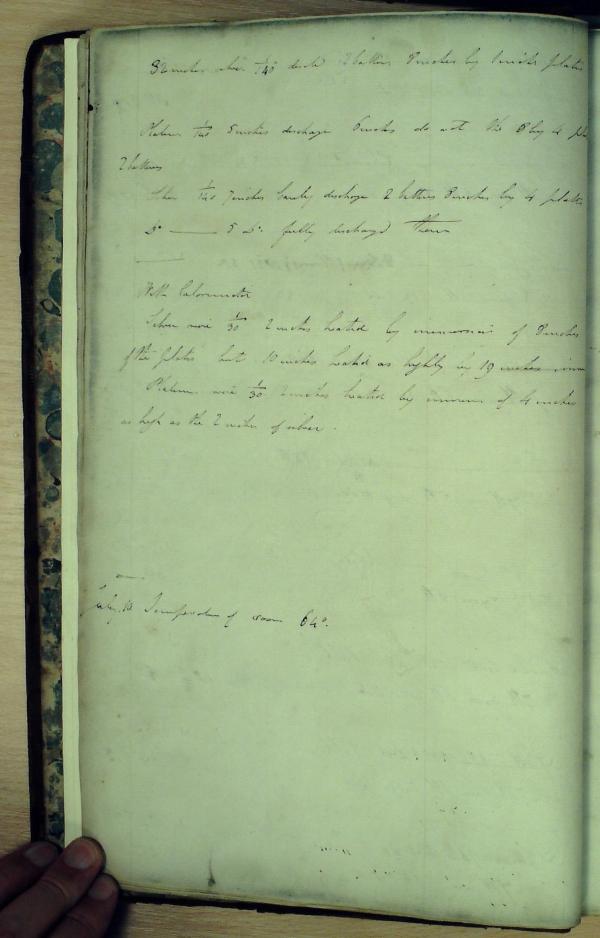 32 inches silver 1/140 disch 2 batteries 8 inches by 6 inch plates
Platina 1/140 5 inches discharge 6 inches do not the 8 by 4 pla
2 batteries
Silver 1/140 7 inches barely discharge 2 batteries 8 inches by 4 plates
Do —— 5 Do. fully discharged them
With Calorimotor
Silver wire 1/30 2 inches heated by immersion of 8 inches
of the plates but 10 inches heated as highly by 19 inches
Platina wire 1/30 2 inches heated by immers of 4 inches
as high as the 2 inches of silver.
July 10 Temperature of room 64°.